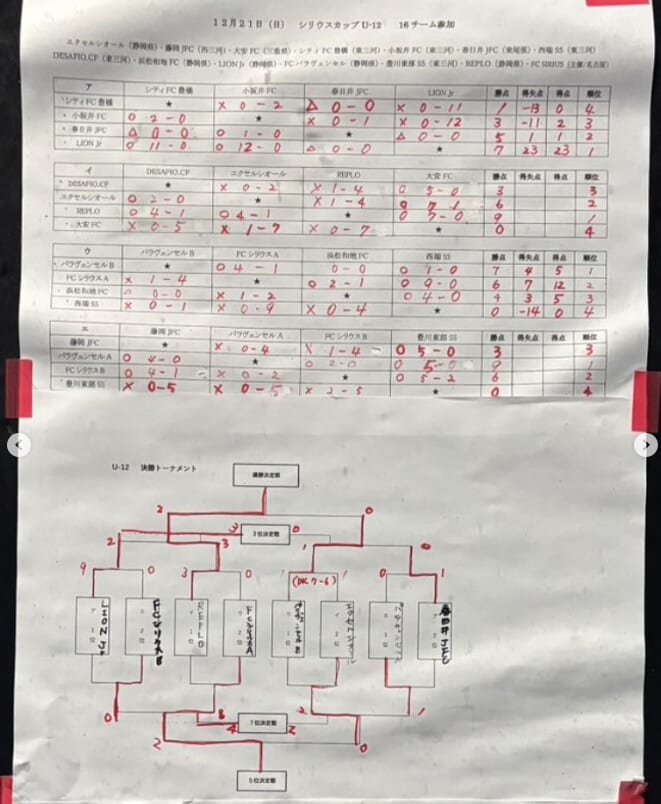 12月21日（日） シリウスカップ U-12 16チーム参加
エクセルシオール（静岡県）・藤岡 JFC（西三河）・大安 FC（三重県）・シティ FC 豊橋（東三河）・小坂井 FC（東三河）・春日井 JFC（東尾張）・西端 SS（東三河）
DESAFIO.CF（東三河）・浜松和地 FC（静岡県）・LION Jr（静岡県）・FC パラヴェンセル（静岡県）・豊川東部 SS（東三河）・REPLO（静岡県）・FC SIRIUS（主催/名古屋）
ア シティ FC 豊橋 小坂井 FC 春日井 JFC LION Jr 勝点 得失点 得点 順位
シティFC 豊橋 ★ × 0-2 △ 0-0 × 0-11 1 -13 0 4
小坂井 FC O 2-0 ★ × 0-1 × 0-12 3 -11 2 3
春日井 JFC △ 0-0 O 1-0 ★ △ 0-0 5 1 1 2
LION Jr O 11-0 O 12-0 △ 0-0 ★ 7 23 23 1
イ DESAFIO.CF エクセルシオール REPLO 大安 FC 勝点 得失点 得点 順位
DESAFIO.CF ★ × 0-2 × 1-4 O 5-0 3 3
エクセルシオール O 2-0 ★ × 1-4 O 7-1 6 2
REPLO O 4-1 O 4-1 ★ O 7-0 9 1
大安 FC × 0-5 × 1-7 × 0-7 ★ 0 4
ウ パラヴェンセル B FC シリウス A 浜松和地 FC 西端 SS 勝点 得失点 得点 順位
パラヴェンセル B ★ O 4-1 0-0 O 1-0 7 4 5 1
FC シリウス A × 1-4 ★ O 2-1 O 9-0 6 7 12 2
浜松和地 FC △ 0-0 × 1-2 ★ O 4-0 4 3 5 3
西端 SS × 0-1 × 0-9 × 0-4 ★ 0 -14 0 4
エ 藤岡 JFC パラヴェンセル A FC シリウス B 豊川東部 SS 勝点 得失点 得点 順位
藤岡 JFC ★ × 0-4 × 1-4 O 5-0 3 3
パラヴェンセル A O 4-0 ★ O 2-0 O 5-0 9 1
FC シリウス B O 4-1 × 0-2 ★ O 5-2 6 2
豊川東部 SS × 0-5 × 0-5 × 2-5 ★ 0 4
U-12 決勝トーナメント
優勝決定戦
2 0
2 3 3 3位決定戦 0 1 0
9 0 3 0 1 (PK 7-6) 1 0 1
LION Jr FCシリウスB REPLO FCシリウスA エクセルシオール 春日井 JFC
ア 1位 エ 2位 イ 1位 ウ 2位 ウ 1位 イ 2位 エ 1位 ア 2位
0 8 4 7位決定戦 2 2 1
2 0
5位決定戦